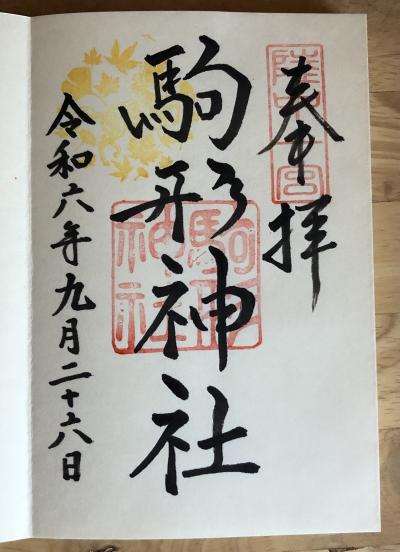 奉拝
陸中一宮
駒形神社
駒形神社
令和六年九月二十六日